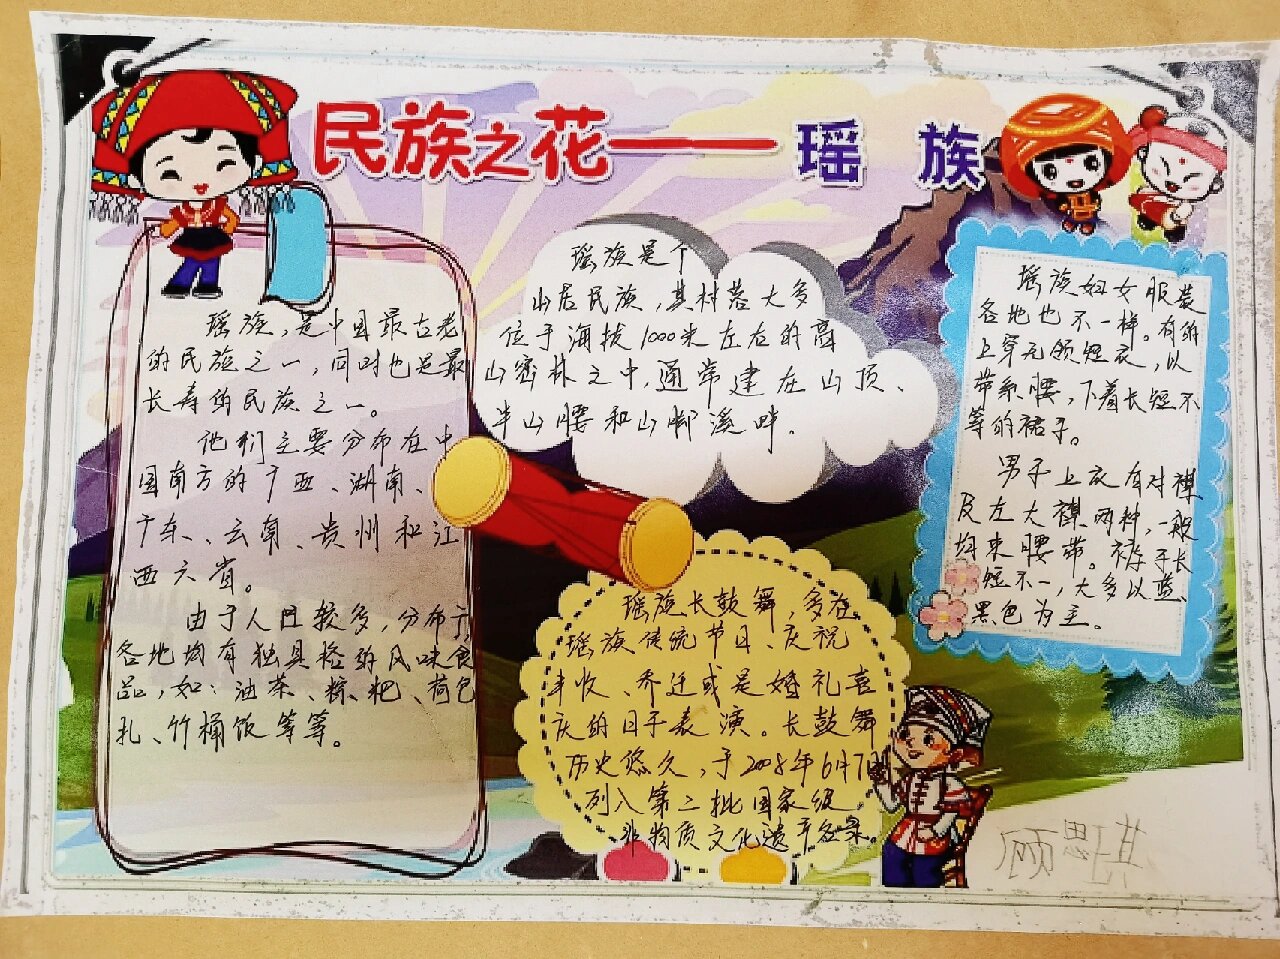 民族之花——瑶 族
瑶族，是中国最古老
的民族之一，同时也是最
长寿的民族之一。
他们主要分布在中
国南方的广西、湖南、
广东、云南、贵州和江
西六省。
由于人口较多，分布于
各地均有独具格的风味食
品，如：油茶、粽粑、荷包
扎、竹桶饭等等。
瑶族是个
山居民族，其村落大多
位于海拔1000米左右的高
山密林之中，通常建在山顶、
半山腰和山脚溪畔。
瑶族长鼓舞，多在
瑶族传统节日、庆祝
丰收、乔迁或是婚礼喜
庆的日子表演。长鼓舞
历史悠久，于2008年6月7日
列入第二批国家级
非物质文化遗产名录。
瑶族妇女服装
各地也不一样。有的
上穿无领短衣，以
带系腰，下着长短不
等的裙子。
男子上衣有对襟
及左大襟两种，一般
均束腰带。裤子长
短不一，大多以蓝、
黑色为主。
顾思琪